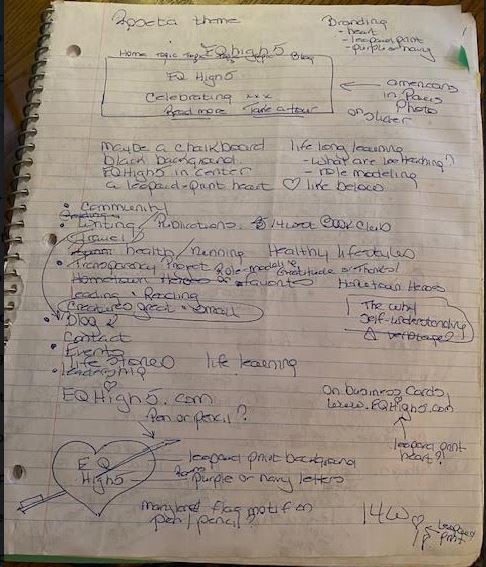 theme
Branding
- heart
- leopard print
- purple or navy
EQ high 5
Home Topic Blog
EQ High5
Celebrating xxx
Read more Take a tour
americans
in Paris
Photo
on slider
maybe a chalkboard
black background.
EQ High5 in center
a leopard-print heart
life long learning
- what are we teaching?
- role modeling
life below
• Community
• Writing / Publications. 14 West Book Club
Travel
health / Running Healthy lifestyles
• Transparency Project Role-modeling Gratitude or Thankful
Hometown Heroes or favorites Hometown Heroes
Leading • Reading
Creatures great & small
• Blog
• Contact
• Events
Life Stories life learning
• leadership
The why
Self-understanding
EQHigh5.com
on business cards,
www.EQHigh5.com
leopard print
heart?!
Pen or pencil?
EQ
High5
leopard print background
purple or navy letters
maryland flag motif on
pen/pencil?
14W
leopard
print